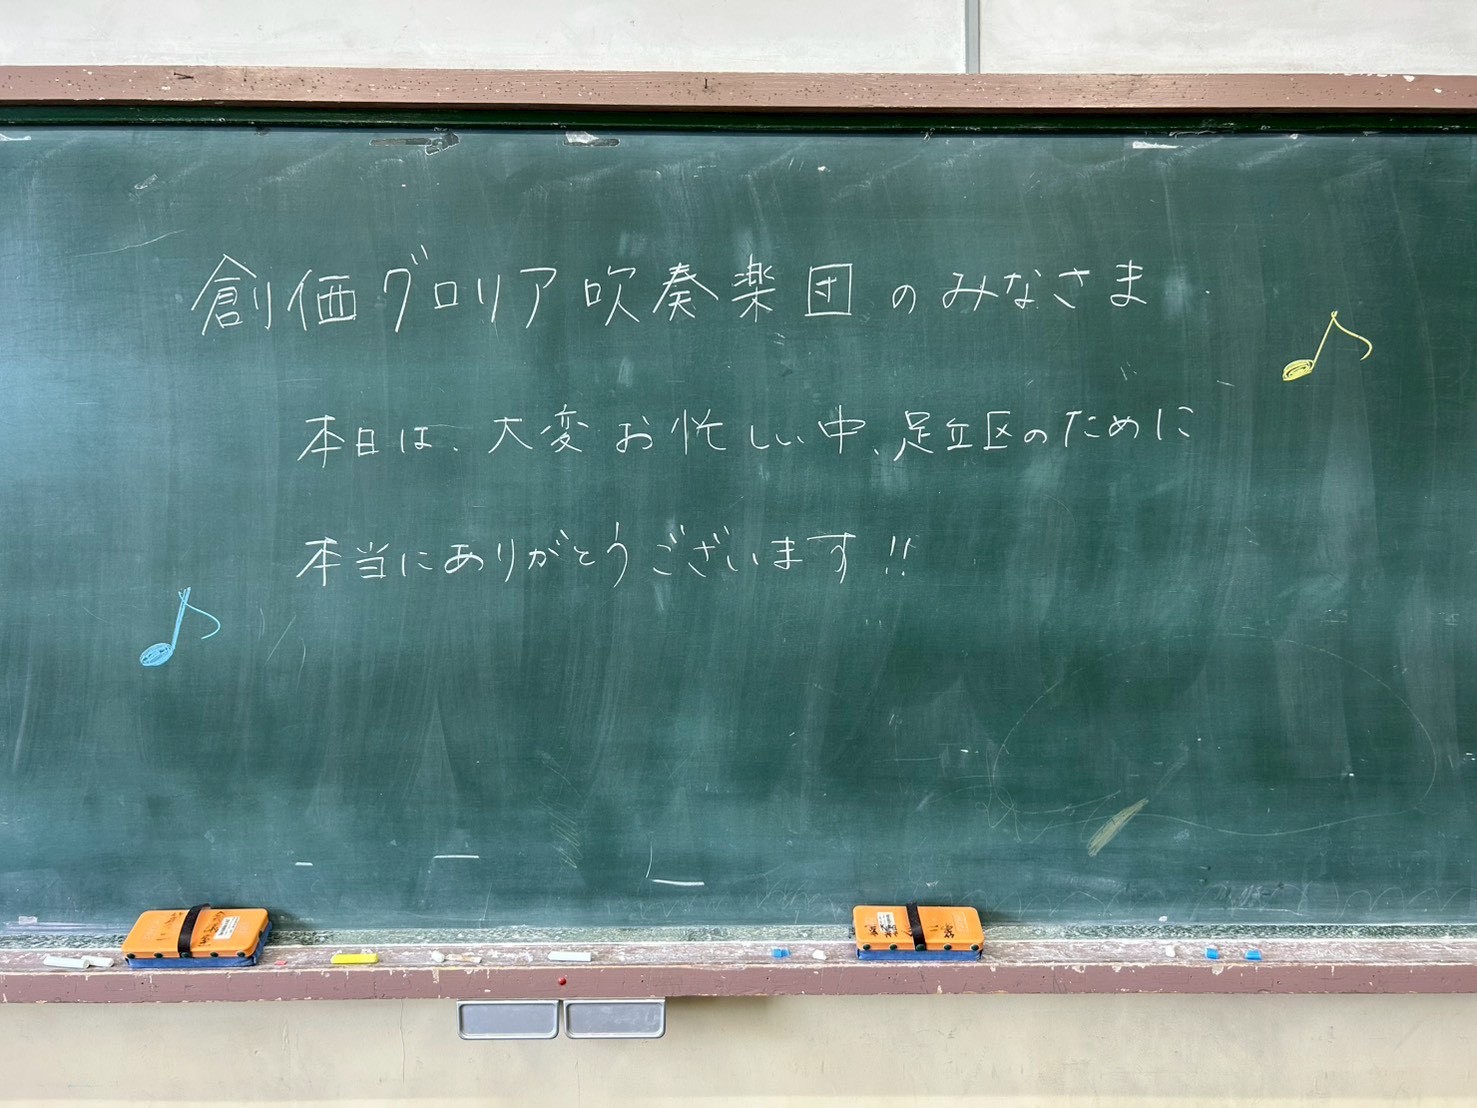 創価グロリア吹奏楽団のみなさま
本日は、大変お忙しい中、足立区のために
本当にありがとうございます!!